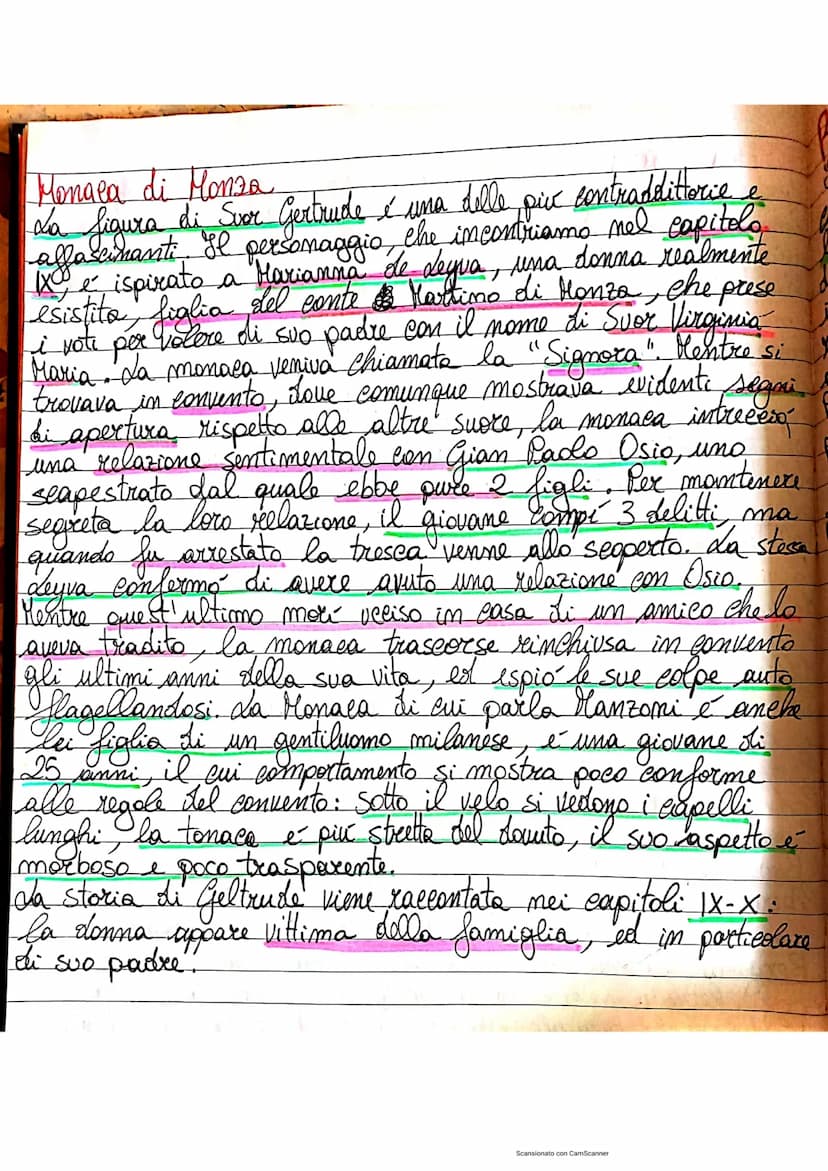 Monaca di Monza
La figura di Suor Gertrude é una delle piu contraddittorie e
affascinanti. Il personaggio, che incontriamo nel capitolo
IX, é ispirato a Marianna de Leyva, una donna realmente
esistita, figlia del conte Martino di Monza, che prese
i voti per volere di suo padre con il nome di Suor Virginia
Maria. La monaca veniva chiamata la "Signora". Mentre si
trovava in convento, dove comunque mostrava evidenti segni
di apertura rispetto alle altre suore, la monaca intrecció
una relazione sentimentale con Gian Paolo Osio, uno
scapestrato dal quale ebbe pure 2 figli. Per mantenere
segreta la loro relazione, il giovane compí 3 delitti, ma
quando fu arrestato la tresca venne allo scoperto. La stessa
Leyva confermó di avere avuto una relazione con Osio.
Mentre quest'ultimo morí ucciso in casa di un amico che lo
aveva tradito, la monaca trascorse rinchiusa in convento
gli ultimi anni della sua vita, ed espió le sue colpe auto
flagellandosi. La Monaca di cui parla Manzoni é anche
lei figlia di un gentiluomo milanese, é una giovane di
25 anni, il cui comportamento si mostra poco conforme
alle regole del convento: sotto il velo si vedono i capelli
lunghi, la tonaca é piu stretta del dovuto, il suo aspetto é
morboso e poco trasparente.
La storia di Geltrude viene raccontata nei capitoli IX-X:
la donna appare vittima della famiglia, ed in particolare
di suo padre.
Scansionato con CamScanner